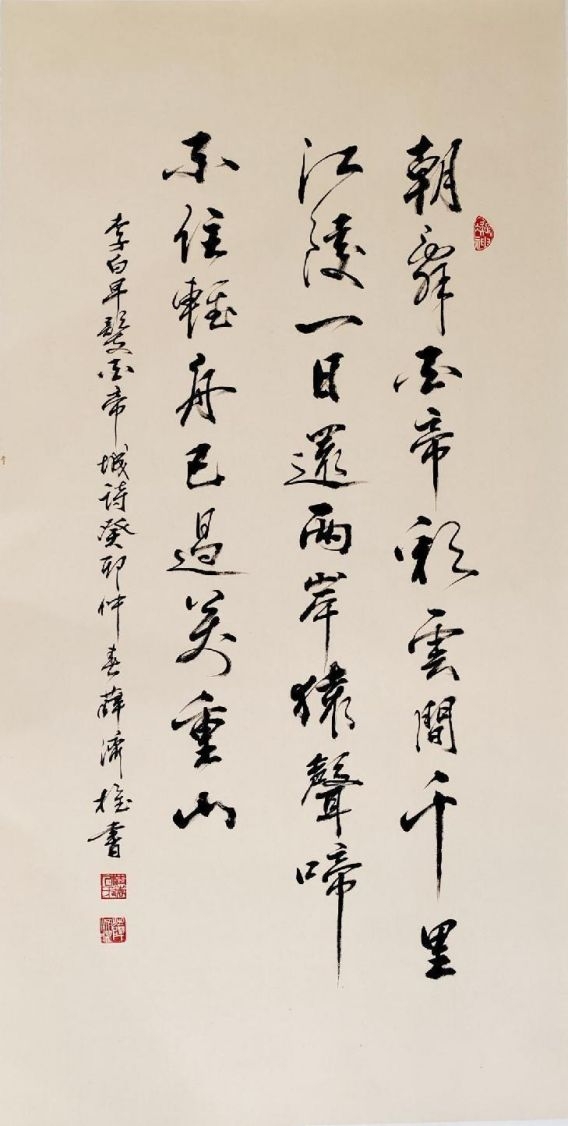 朝辭白帝彩雲間千里
江陵一日還兩岸猿聲啼
不住輕舟已過萬重山
李白早發白帝城詩癸卯仲春薛濟
書